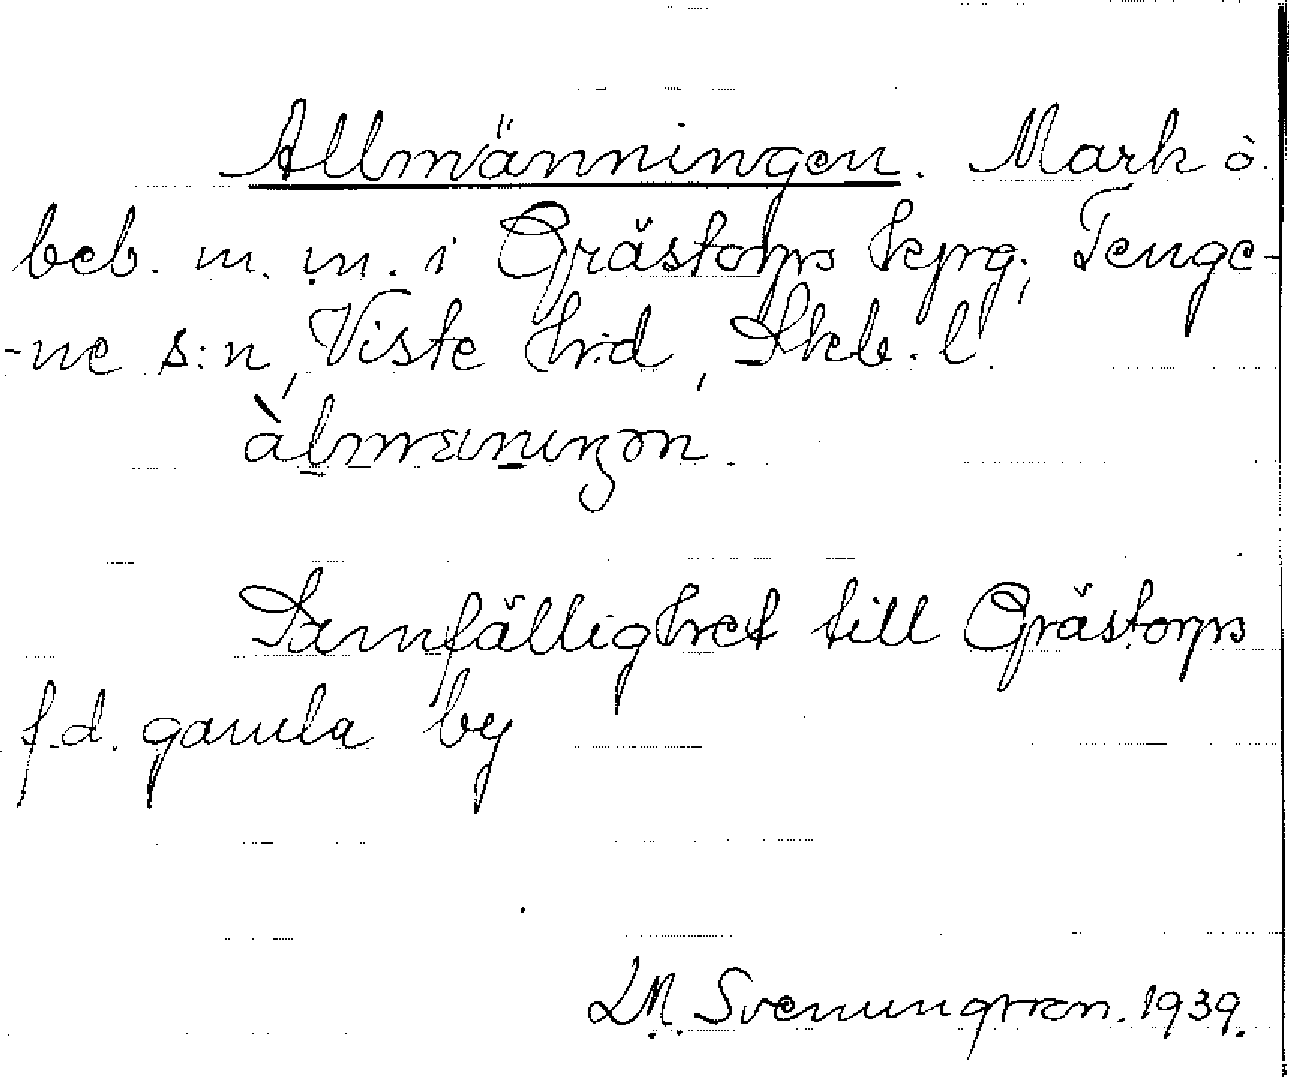 Allmänningen. Mark o.
beb. m. m. i Grästorps kpng, Tenge-
-ne s:n, Viste hrd, Skb. l.
àlmæniŋən.
Samfällighet till Grästorps
f.d. gamla by
LM. Svenungsson. 1939.